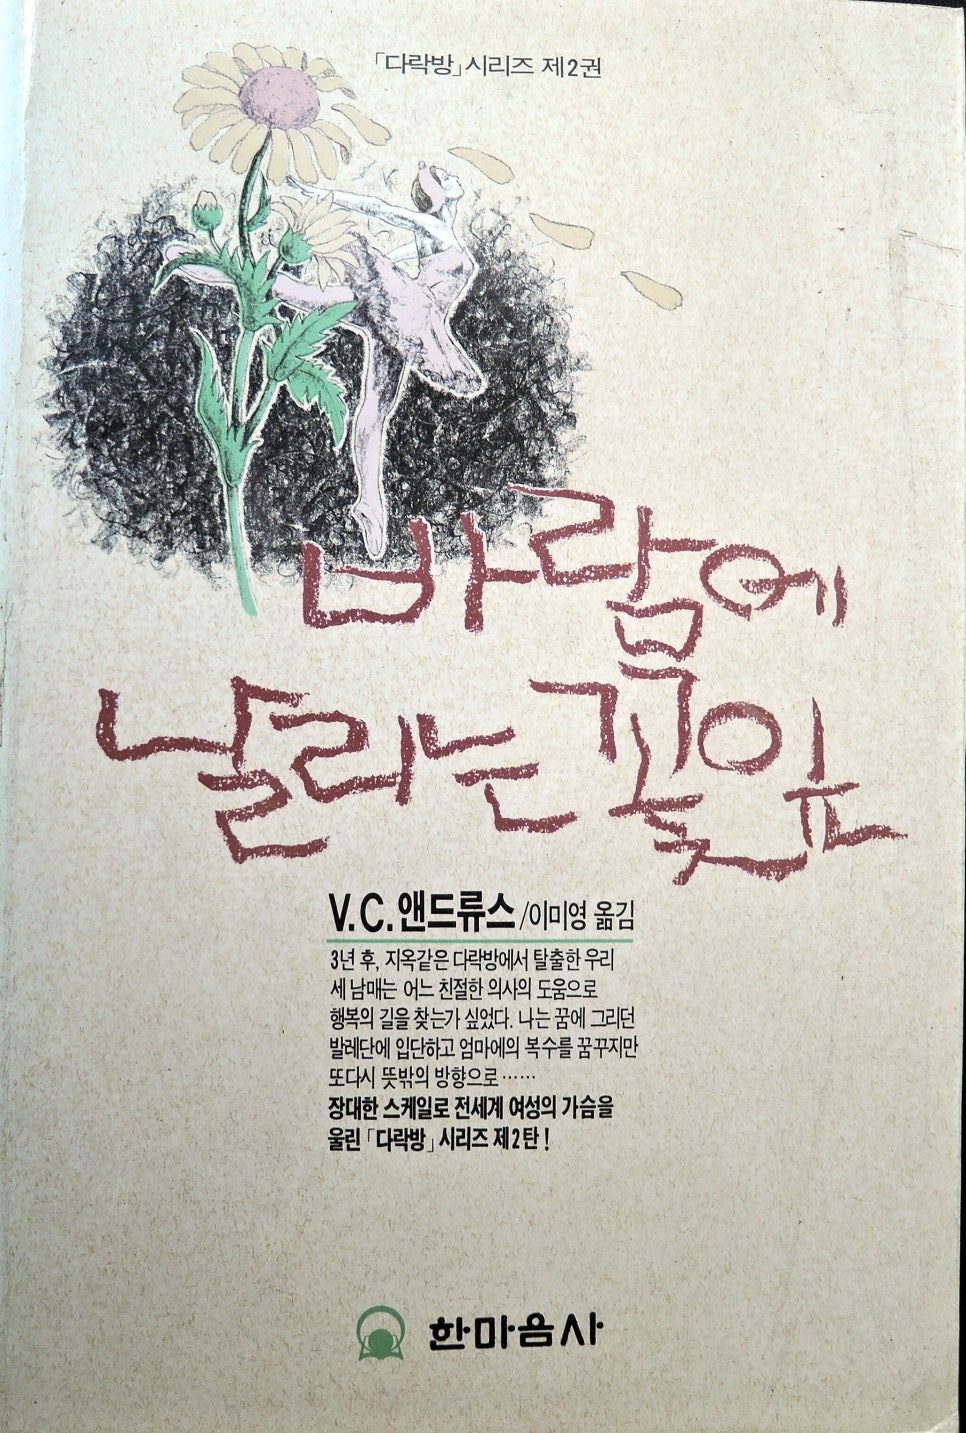 「다락방」시리즈 제2권
바람에
날리는 꽃잎
V.C.앤드류스/이미영 옮김
3년 후, 지옥같은 다락방에서 탈출한 우리
세 남매는 어느 친절한 의사의 도움으로
행복의 길을 찾는가 싶었다. 나는 꿈에 그리던
발레단에 입단하고 엄마에의 복수를 꿈꾸지만
또다시 뜻밖의 방향으로……
장대한 스케일로 전세계 여성의 가슴을
울린「다락방」시리즈 제2탄!
한마음사